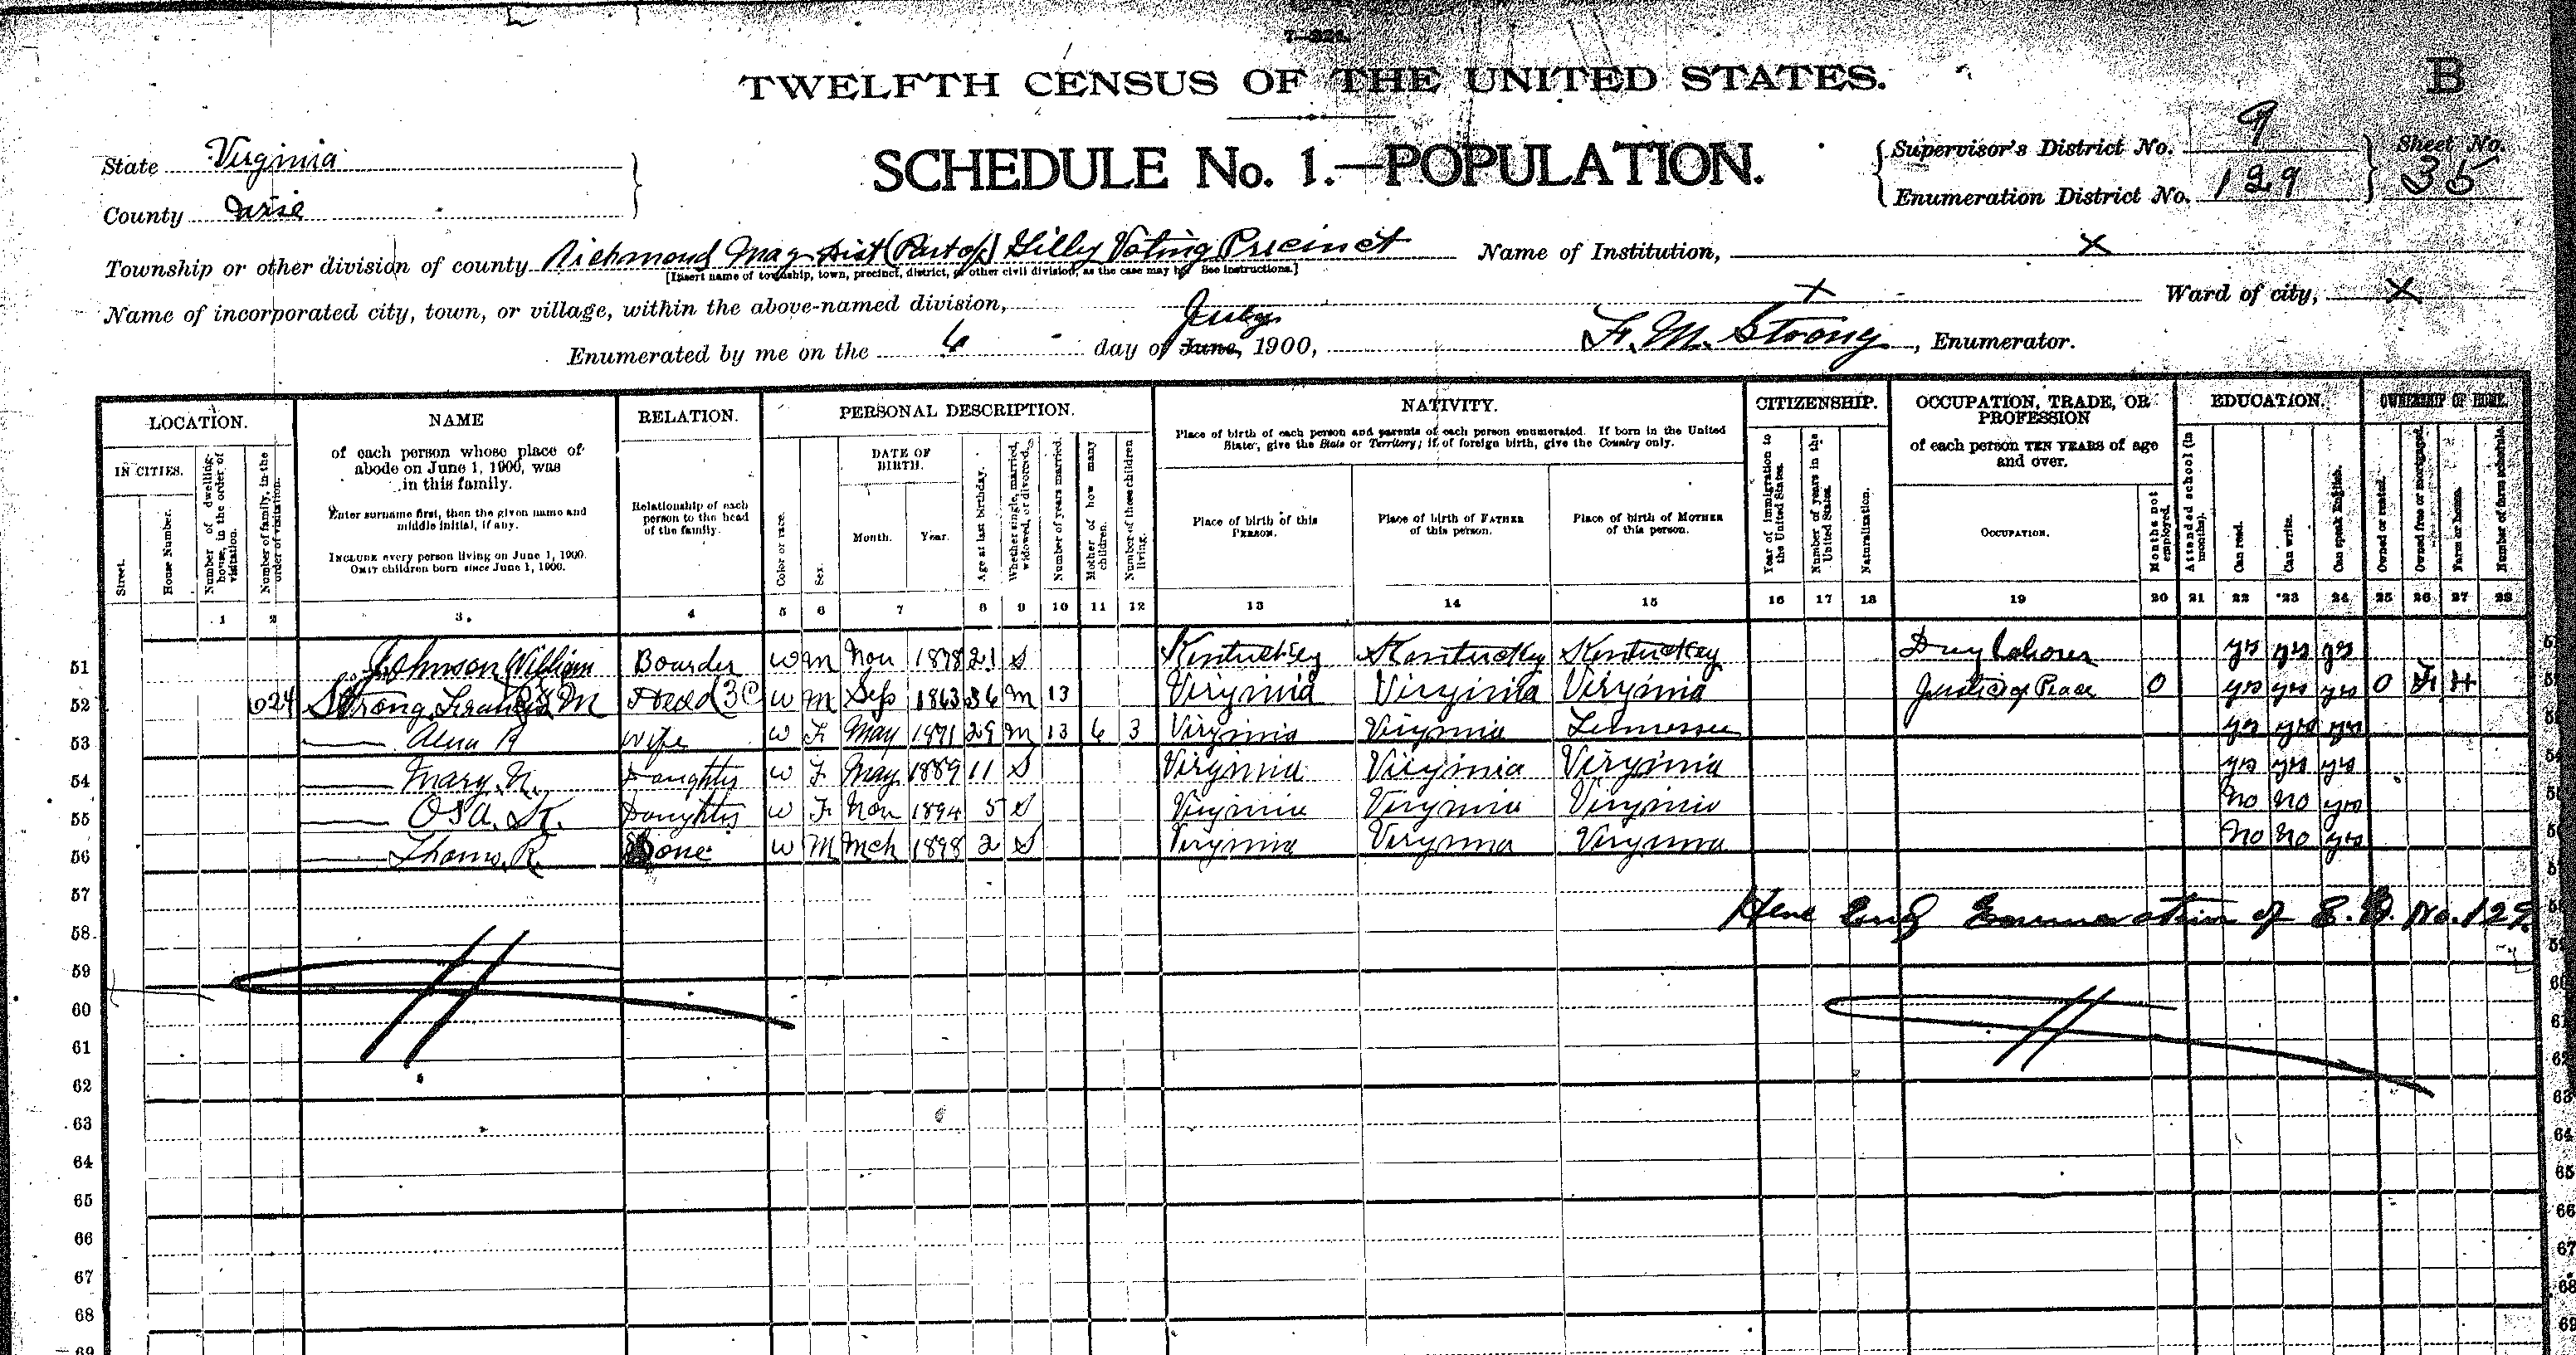 7—224.
TWELFTH CENSUS OF THE UNITED STATES.
B
SCHEDULE No. 1.—POPULATION.
State Virginia
County Wise
Supervisor's District No. 9
Enumeration District No. 129
Sheet No.
35
Township or other division of county Richmond Mag Dist (Part of) Gilly Voting Precinct Name of Institution, X
[Insert name of township, town, precinct, district, or other civil division, as the case may be. See instructions.]
Name of incorporated city, town, or village, within the above-named division, X Ward of city, X
Enumerated by me on the 6 day of June, July 1900, F. M. Strong, Enumerator.
LOCATION. NAME RELATION. PERSONAL DESCRIPTION. NATIVITY. CITIZENSHIP. OCCUPATION, TRADE, OR PROFESSION EDUCATION. OWNERSHIP OF HOME.
IN CITIES.
Street.
House Number.
Number of dwelling-house, in the order of visitation.
Number of family, in the order of visitation.
of each person whose place of abode on June 1, 1900, was in this family.
Enter surname first, then the given name and middle initial, if any.
INCLUDE every person living on June 1, 1900.
OMIT children born since June 1, 1900.
Relationship of each person to the head of the family.
Color or race.
Sex.
DATE OF BIRTH.
Month.
Year.
Age at last birthday.
Whether single, married, widowed, or divorced.
Number of years married.
Mother of how many children.
Number of these children living.
Place of birth of each person and parents of each person enumerated. If born in the United States, give the State or Territory; if of foreign birth, give the Country only.
Place of birth of this PERSON.
Place of birth of FATHER of this person.
Place of birth of MOTHER of this person.
Year of immigration to the United States.
Number of years in the United States.
Naturalization.
of each person TEN YEARS of age and over.
OCCUPATION.
Months not employed.
Attended school (in months).
Can read.
Can write.
Can speak English.
Owned or rented.
Owned free or mortgaged.
Farm or house.
Number of farm schedule.
1 2 3 4 5 6 7 8 9 10 11 12 13 14 15 16 17 18 19 20 21 22 23 24 25 26 27 28
51 Johnson William Boarder W M Nov 1878 21 S Kentucky Kentucky Kentucky Day Laborer yes yes yes
52 Strong M Head W M Sep 1863 36 M 13 Virginia Virginia Virginia Justice of Peace 0 yes yes yes O F H
53 R Wife W F May 1871 29 M 13 6 3 Virginia Virginia Tennessee yes yes yes
54 Mary N. Daughter W F May 1889 11 S Virginia Virginia Virginia yes yes yes
55 Daughter W F Nov 1894 5 S Virginia Virginia Virginia no no yes
56 R. Sone W M Mch 1898 2 S Virginia Virginia Virginia No No yes
57
Here End Enumeration of E. D. No. 129.
58
59
60
61
62
63
64
65
66
67
68
69